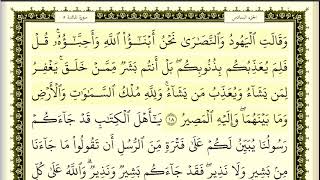 الجزء السادس
سورة المائدة ٥
وَقَالَتِ ٱلْيَهُودُ وَٱلنَّصَٰرَىٰ نَحْنُ أَبْنَٰٓؤُا۟ ٱللَّهِ وَأَحِبَّٰٓؤُهُۥ ۚ قُلْ
فَلِمَ يُعَذِّبُكُم بِذُنُوبِكُم ۖ بَلْ أَنتُم بَشَرٌ مِّمَّنْ خَلَقَ ۚ يَغْفِرُ
لِمَن يَشَآءُ وَيُعَذِّبُ مَن يَشَآءُ ۚ وَلِلَّهِ مُلْكُ ٱلسَّمَٰوَٰتِ وَٱلْأَرْضِ
وَمَا بَيْنَهُمَا ۖ وَإِلَيْهِ ٱلْمَصِيرُ ١٨ يَٰٓأَهْلَ ٱلْكِتَٰبِ قَدْ جَآءَكُمْ
رَسُولُنَا يُبَيِّنُ لَكُمْ عَلَىٰ فَتْرَةٍ مِّنَ ٱلرُّسُلِ أَن تَقُولُوا۟ مَا جَآءَنَا
مِنۢ بَشِيرٍ وَلَا نَذِيرٍ ۖ فَقَدْ جَآءَكُم بَشِيرٌ وَنَذِيرٌ ۗ وَٱللَّهُ عَلَىٰ كُلِّ